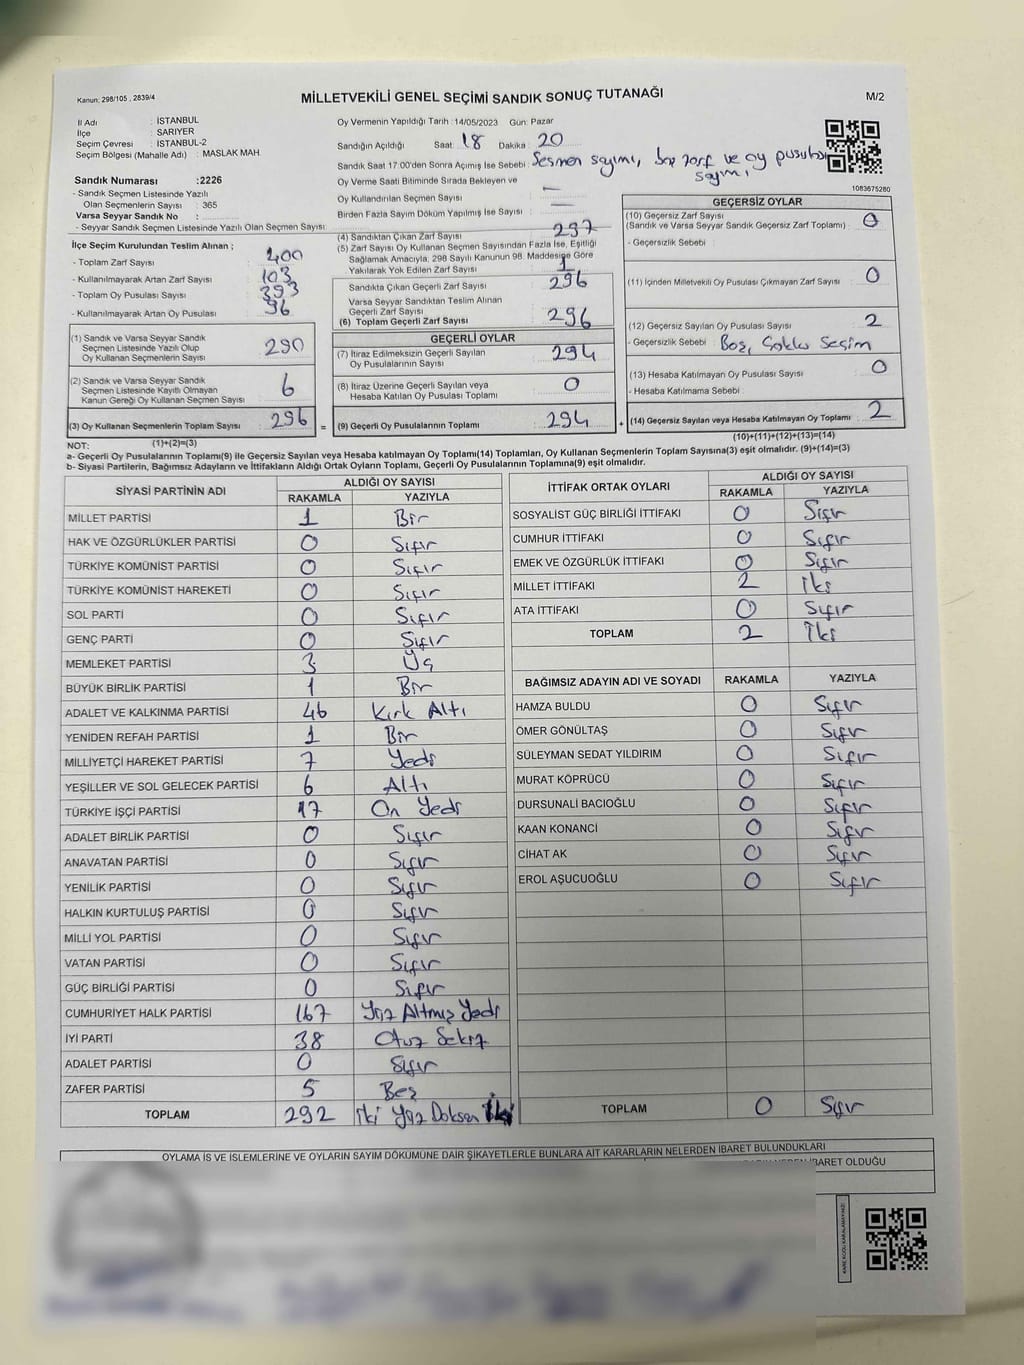 Kanun: 298/105 , 2839/4
MİLLETVEKİLİ GENEL SEÇİMİ SANDIK SONUÇ TUTANAĞI
M/2
İl Adı : İSTANBUL
İlçe : SARIYER
Seçim Çevresi : İSTANBUL-2
Seçim Bölgesi (Mahalle Adı) : MASLAK MAH.
Oy Vermenin Yapıldığı Tarih : 14/05/2023 Gün: Pazar
Sandığın Açıldığı Saat: 18 Dakika : 20
Sandık Saat 17:00'den Sonra Açımış İse Sebebi : Seçmen sayımı, boş zarf ve oy pusulası sayımı
Oy Verme Saati Bitiminde Sırada Bekleyen ve
Oy Kullandırılan Seçmen Sayısı : —
Birden Fazla Sayım Döküm Yapılmış İse Sayısı : —
1083675280
Sandık Numarası :2226
- Sandık Seçmen Listesinde Yazılı
Olan Seçmenlerin Sayısı : 365
Varsa Seyyar Sandık No :
- Seyyar Sandık Seçmen Listesinde Yazılı Olan Seçmen Sayısı:
İlçe Seçim Kurulundan Teslim Alınan ;
- Toplam Zarf Sayısı : 400
- Kullanılmayarak Artan Zarf Sayısı : 103
- Toplam Oy Pusulası Sayısı : 393
- Kullanılmayarak Artan Oy Pusulası : 96
(1) Sandık ve Varsa Seyyar Sandık
Seçmen Listesinde Yazılı Olup
Oy Kullanan Seçmenlerin Sayısı : 290
(2) Sandık ve Varsa Seyyar Sandık
Seçmen Listesinde Kayıtlı Olmayan
Kanun Gereği Oy Kullanan Seçmen Sayısı : 6
(3) Oy Kullanan Seçmenlerin Toplam Sayısı : 296 =
(4) Sandıktan Çıkan Zarf Sayısı : 297
(5) Zarf Sayısı Oy Kullanan Seçmen Sayısından Fazla İse, Eşitliği
Sağlamak Amacıyla; 298 Sayılı Kanunun 98. Maddesine Göre
Yakılarak Yok Edilen Zarf Sayısı : 1
Sandıkta Çıkan Geçerli Zarf Sayısı : 296
Varsa Seyyar Sandıktan Teslim Alınan
Geçerli Zarf Sayısı :
(6) Toplam Geçerli Zarf Sayısı : 296
GEÇERLİ OYLAR
(7) İtiraz Edilmeksizin Geçerli Sayılan
Oy Pusulalarının Sayısı : 294
(8) İtiraz Üzerine Geçerli Sayılan veya
Hesaba Katılan Oy Pusulası Toplamı : 0
(9) Geçerli Oy Pusulalarının Toplamı : 294 +
GEÇERSİZ OYLAR
(10) Geçersiz Zarf Sayısı
(Sandık ve Varsa Seyyar Sandık Geçersiz Zarf Toplamı) : 0
- Geçersizlik Sebebi :
(11) İçinden Milletvekili Oy Pusulası Çıkmayan Zarf Sayısı : 0
(12) Geçersiz Sayılan Oy Pusulası Sayısı : 2
- Geçersizlik Sebebi : Boş, Çoklu Seçim
(13) Hesaba Katılmayan Oy Pusulası Sayısı : 0
- Hesaba Katılmama Sebebi :
(14) Geçersiz Sayılan veya Hesaba Katılmayan Oy Toplamı : 2
(10)+(11)+(12)+(13)=(14)
NOT: (1)+(2)=(3)
a- Geçerli Oy Pusulalarının Toplamı(9) ile Geçersiz Sayılan veya Hesaba katılmayan Oy Toplamı(14) Toplamları, Oy Kullanan Seçmenlerin Toplam Sayısına(3) eşit olmalıdır. (9)+(14)=(3)
b- Siyasi Partilerin, Bağımsız Adayların ve İttifakların Aldığı Ortak Oyların Toplamı, Geçerli Oy Pusulalarının Toplamına(9) eşit olmalıdır.
SİYASİ PARTİNİN ADI
ALDIĞI OY SAYISI
RAKAMLA YAZIYLA
MİLLET PARTİSİ 1 Bir
HAK VE ÖZGÜRLÜKLER PARTİSİ 0 Sıfır
TÜRKİYE KOMÜNİST PARTİSİ 0 Sıfır
TÜRKİYE KOMÜNİST HAREKETİ 0 Sıfır
SOL PARTİ 0 Sıfır
GENÇ PARTİ 0 Sıfır
MEMLEKET PARTİSİ 3 Üç
BÜYÜK BİRLİK PARTİSİ 1 Bir
ADALET VE KALKINMA PARTİSİ 46 Kırk Altı
YENİDEN REFAH PARTİSİ 1 Bir
MİLLİYETÇİ HAREKET PARTİSİ 7 Yedi
YEŞİLLER VE SOL GELECEK PARTİSİ 6 Altı
TÜRKİYE İŞÇİ PARTİSİ 17 On Yedi
ADALET BİRLİK PARTİSİ 0 Sıfır
ANAVATAN PARTİSİ 0 Sıfır
YENİLİK PARTİSİ 0 Sıfır
HALKIN KURTULUŞ PARTİSİ 0 Sıfır
MİLLİ YOL PARTİSİ 0 Sıfır
VATAN PARTİSİ 0 Sıfır
GÜÇ BİRLİĞİ PARTİSİ 0 Sıfır
CUMHURİYET HALK PARTİSİ 167 Yüz Altmış Yedi
İYİ PARTİ 38 Otuz Sekiz
ADALET PARTİSİ 0 Sıfır
ZAFER PARTİSİ 5 Beş
TOPLAM 292 İki Yüz Doksan İki
İTTİFAK ORTAK OYLARI
ALDIĞI OY SAYISI
RAKAMLA YAZIYLA
SOSYALİST GÜÇ BİRLİĞİ İTTİFAKI 0 Sıfır
CUMHUR İTTİFAKI 0 Sıfır
EMEK VE ÖZGÜRLÜK İTTİFAKI 0 Sıfır
MİLLET İTTİFAKI 2 İki
ATA İTTİFAKI 0 Sıfır
TOPLAM 2 İki
BAĞIMSIZ ADAYIN ADI VE SOYADI RAKAMLA YAZIYLA
HAMZA BULDU 0 Sıfır
ÖMER GÖNÜLTAŞ 0 Sıfır
SÜLEYMAN SEDAT YILDIRIM 0 Sıfır
MURAT KÖPRÜCÜ 0 Sıfır
DURSUNALİ BACIOĞLU 0 Sıfır
KAAN KONANCİ 0 Sıfır
CİHAT AK 0 Sıfır
EROL AŞUCUOĞLU 0 Sıfır
TOPLAM 0 Sıfır
OYLAMA İŞ VE İŞLEMLERİNE VE OYLARIN SAYIM DÖKÜMÜNE DAİR ŞİKAYETLERLE BUNLARA AİT KARARLARIN NELERDEN İBARET BULUNDUKLARI
İBARET OLDUĞU
KARE KODU KARALAMAYINIZ!